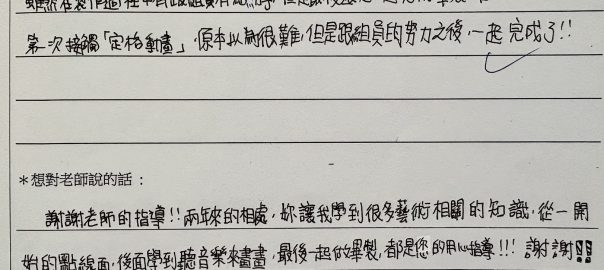 第一次接觸「定格動畫」,原本以為很難,但是跟組員的努力之後,一起完成了!!
*想對老師說的話:
謝謝老師的指導!!兩年來的相處,妳讓我學到很多藝術相關的知識,從一開
始的點線面,後面學到聽音樂來畫畫,最後一起做畢製,都是您的用心指導!!!謝謝!!